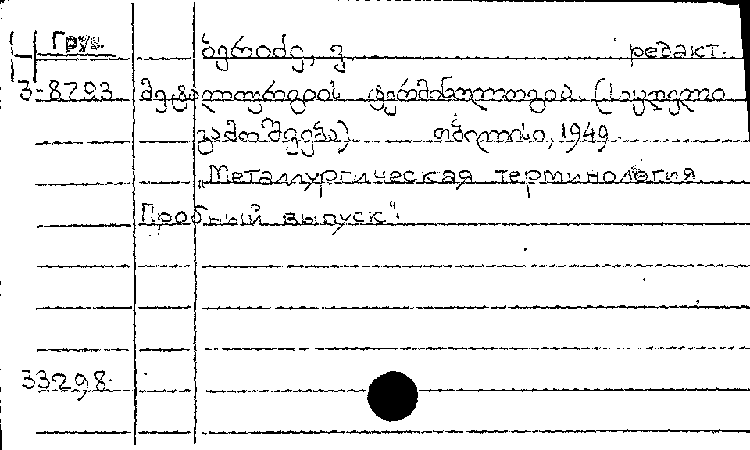 Груз.
ბერიძე, ვ. редакт.
3-8793 მეტალურგიის ტერმინოლოგია (საცდელი
გამოშვება) თბილისი, 1949
„Металлургическая терминология.
Пробный выпуск“.
33298.